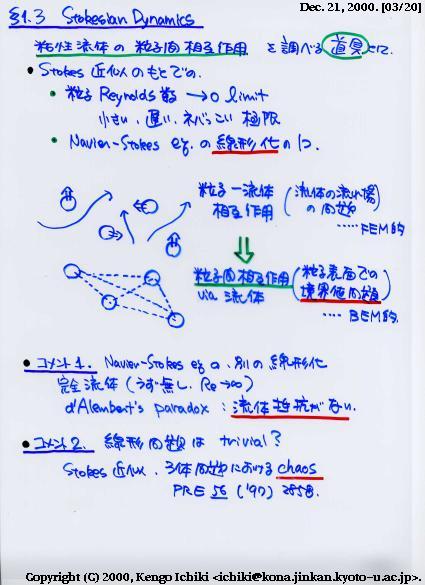 Dec. 21, 2000. [03/20]
§1.3 Stokesian Dynamics
粘性流体の粒子間相互作用 を調べる 道具として.
• Stokes 近似のもとでの.
• 粒子 Reynolds 数 → 0 limit
小さい, 遅い, ネバっこい 極限
• Navier-Stokes eq. の 線形化 の1つ.
粒子一流体 (流体の流れ場
相互作用 の問題)
..... FEM的
⇓
粒子間相互作用 (粒子表面での
via 流体 境界値問題)
.... BEM的.
• コメント1. Navier-Stokes eq の、別の線形化
完全流体 (うず無し, Re→∞)
d'Alembert's paradox : 流体抵抗がない.
• コメント2. 線形問題は trivial?
Stokes 近似、3体問題における chaos
PRE 56 ('97) 2858.
Copyright (C) 2000, Kengo Ichiki <ichiki@kona.jinkan.kyoto-u.ac.jp>.